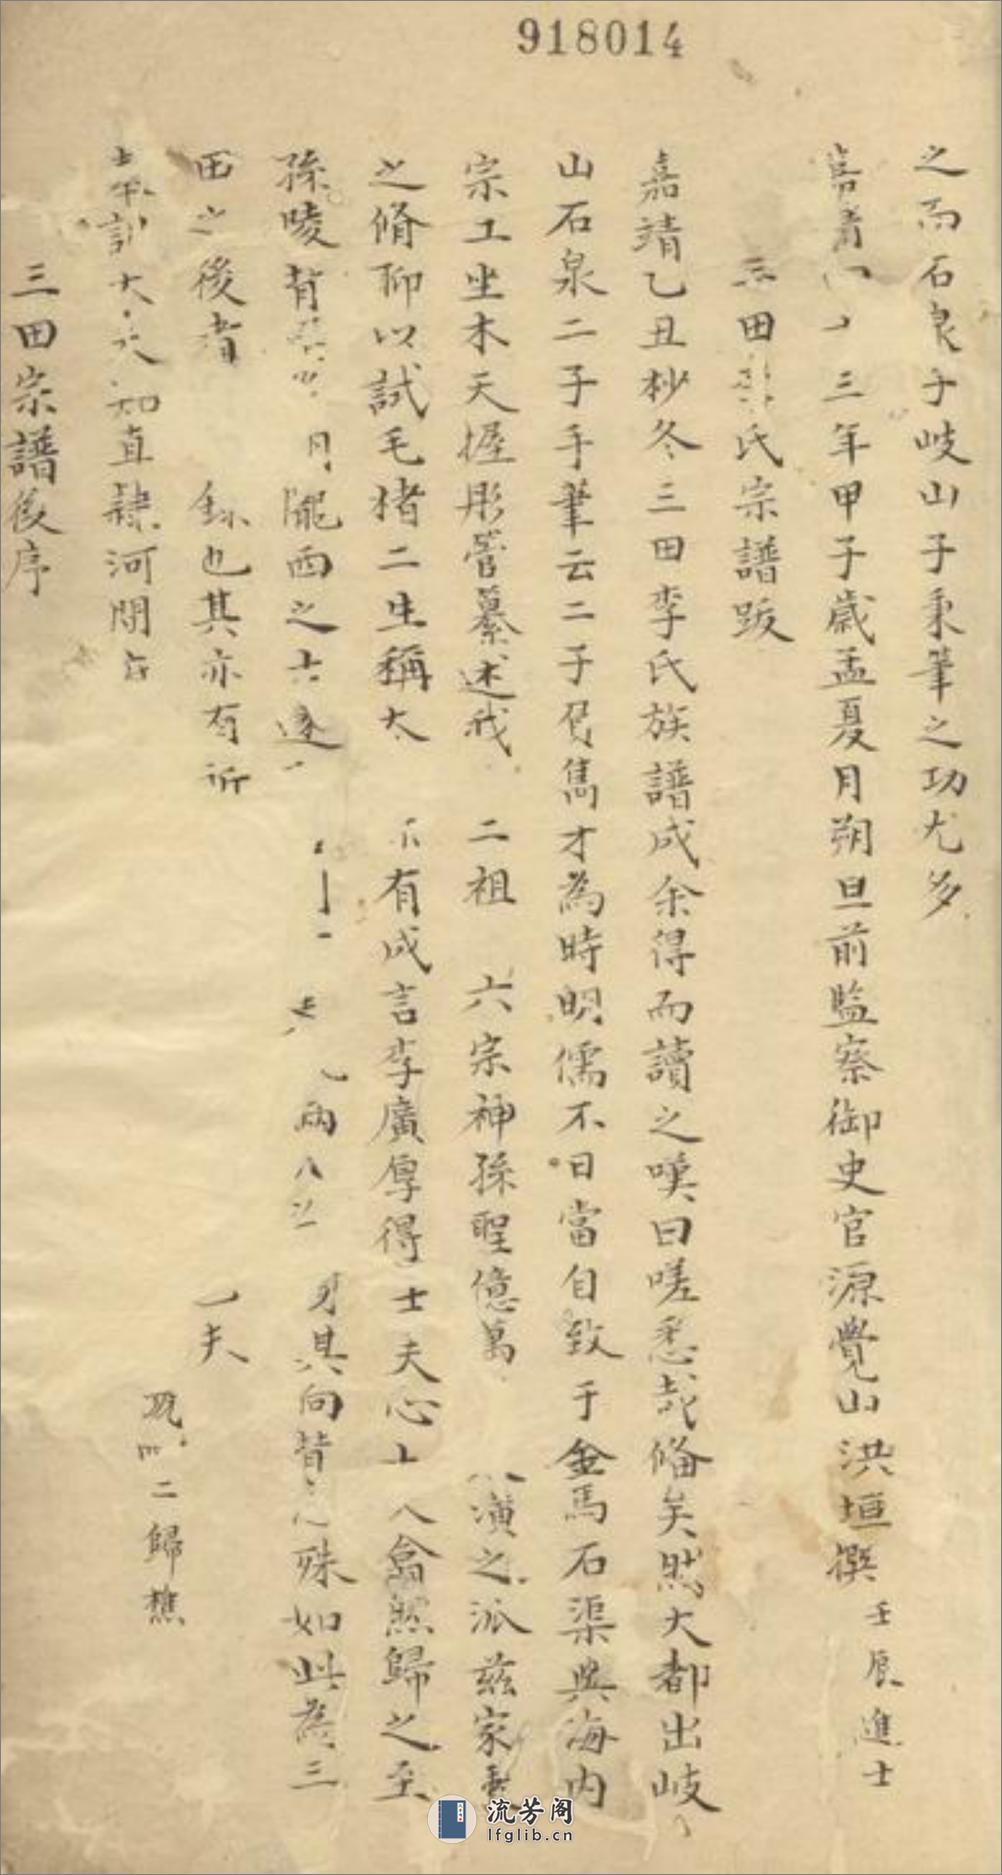 918014
之而石泉子岐山子秉筆之功尤多
三年甲子歲孟夏月朔旦前監察御史官源覺山洪垣撰 壬辰進士
田 氏宗譜跋
嘉靖乙丑杪冬三田李氏族譜成余得而讀之嘆曰嗟悉哉脩矣然大都出岐
山石泉二子手筆云二子負雋才為時明儒不日當自致于金馬石渠與海內
宗工坐木天握彤管纂述我 二祖 六宗神孫聖億萬 潢之派茲家
之脩仰以試毛楮二生稱大 有成言李廣厚得士夫心 翕然歸之至
孫陵背 月隴西之士遂 兩 其向背 殊如此為三
田之後者 也其亦有所 夫
訓大夫知直隸河間 二歸樵
三田宗譜後序
流芳阁
lfglib.cn